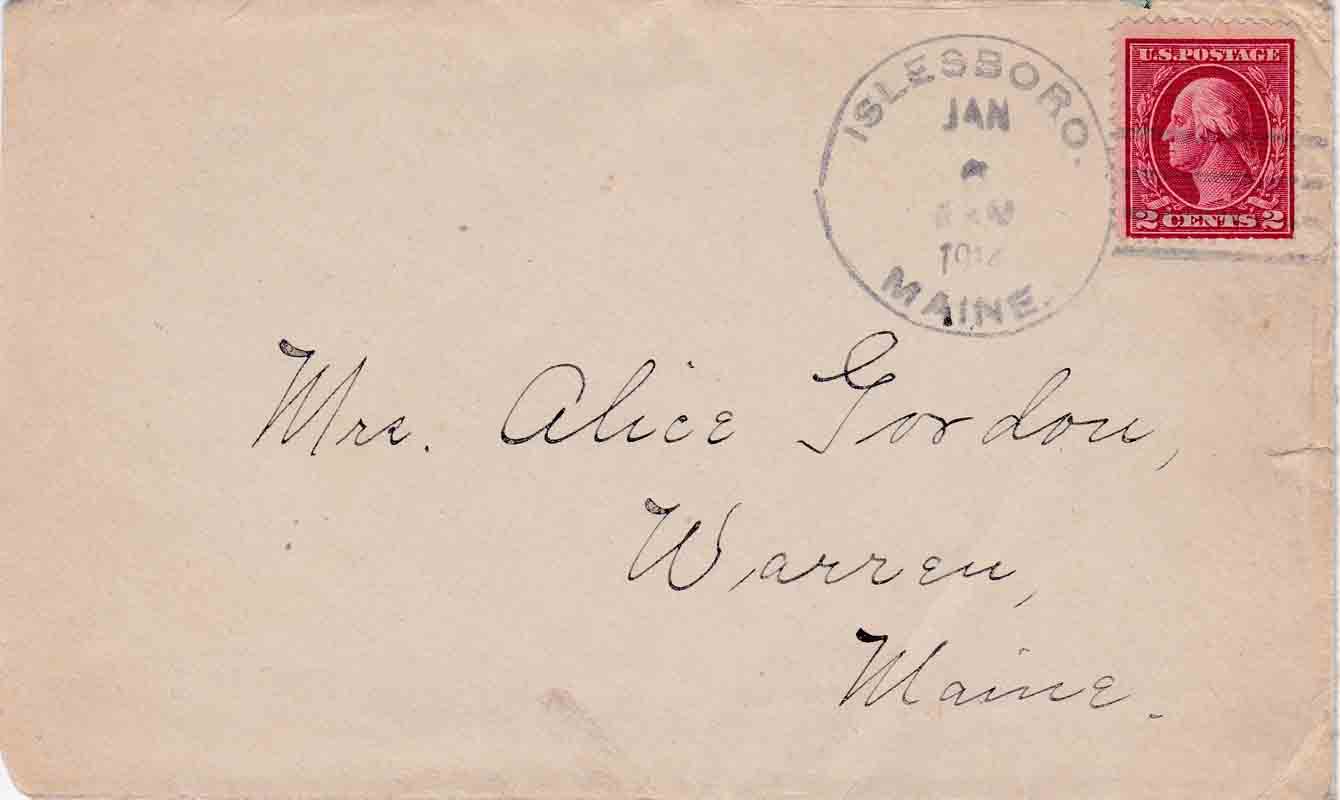 ISLESBORO.
JAN
MAINE.
U.S. POSTAGE
2 CENTS 2
Mrs. Alice Gordon,
Warren,
Maine.